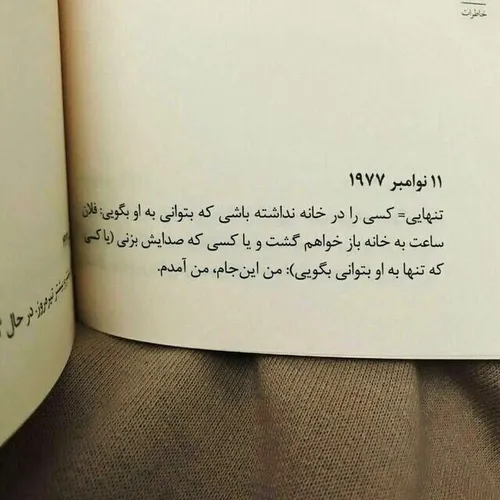 خاطرات
۱۱ نوامبر ۱۹۷۷
تنهایی= کسی را در خانه نداشته باشی که بتوانی به او بگویی: فلان
ساعت به خانه باز خواهم گشت و یا کسی که صدایش بزنی (یا کسی
که تنها به او بتوانی بگویی): من این‌جام، من آمدم.
در حال